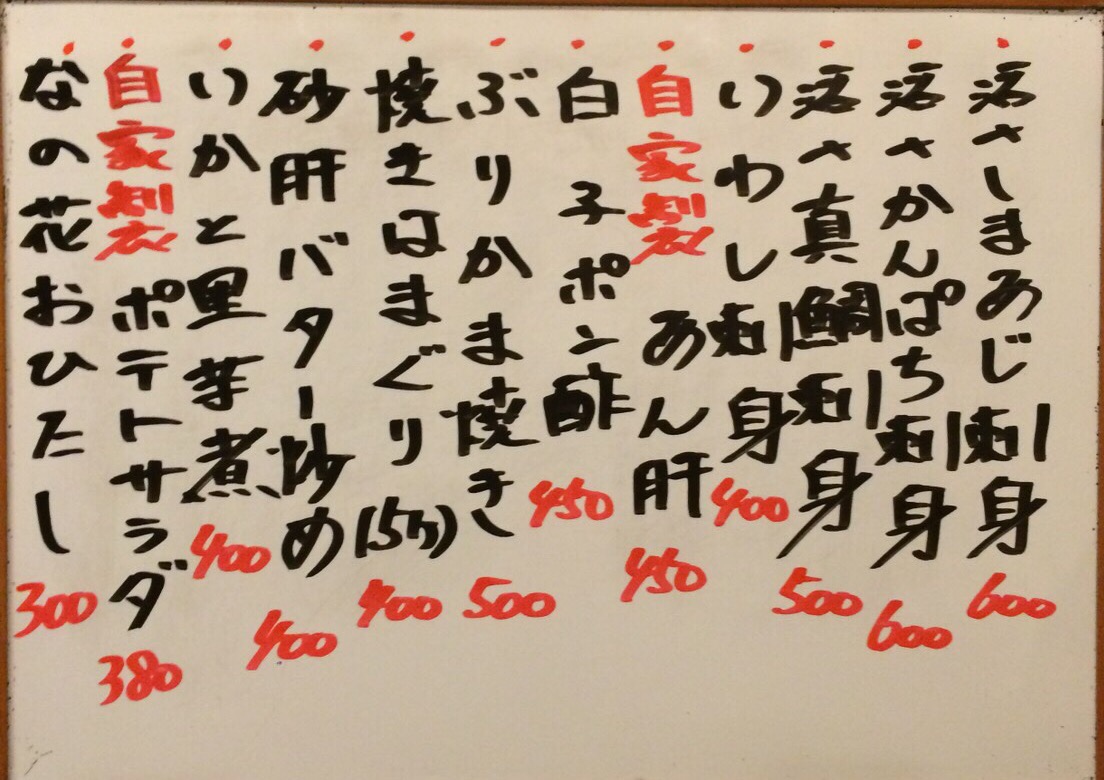 活〆しまあじ刺身 600
活〆かんぱち刺身 600
活〆真鯛刺身 500
いわし刺身 400
自家製あん肝 450
白子ポン酢 450
ぶりかま焼き 500
焼きはまぐり(5ヶ) 400
砂肝バター炒め 400
いかと里芋煮 400
自家製ポテトサラダ 380
なの花おひたし 300